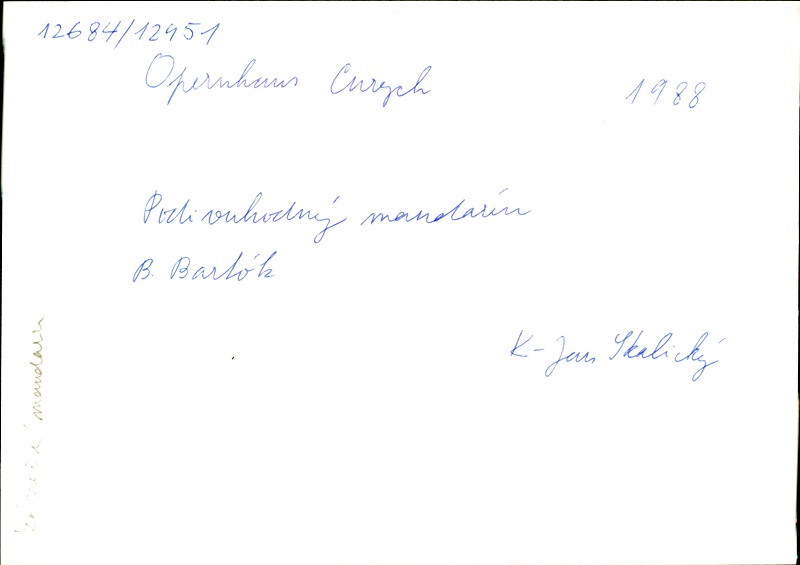 12684/12451
Opernhaus Curych 1988
Podivuhodný mandarín
B. Bartók
K - Jan Skalický
mandarín